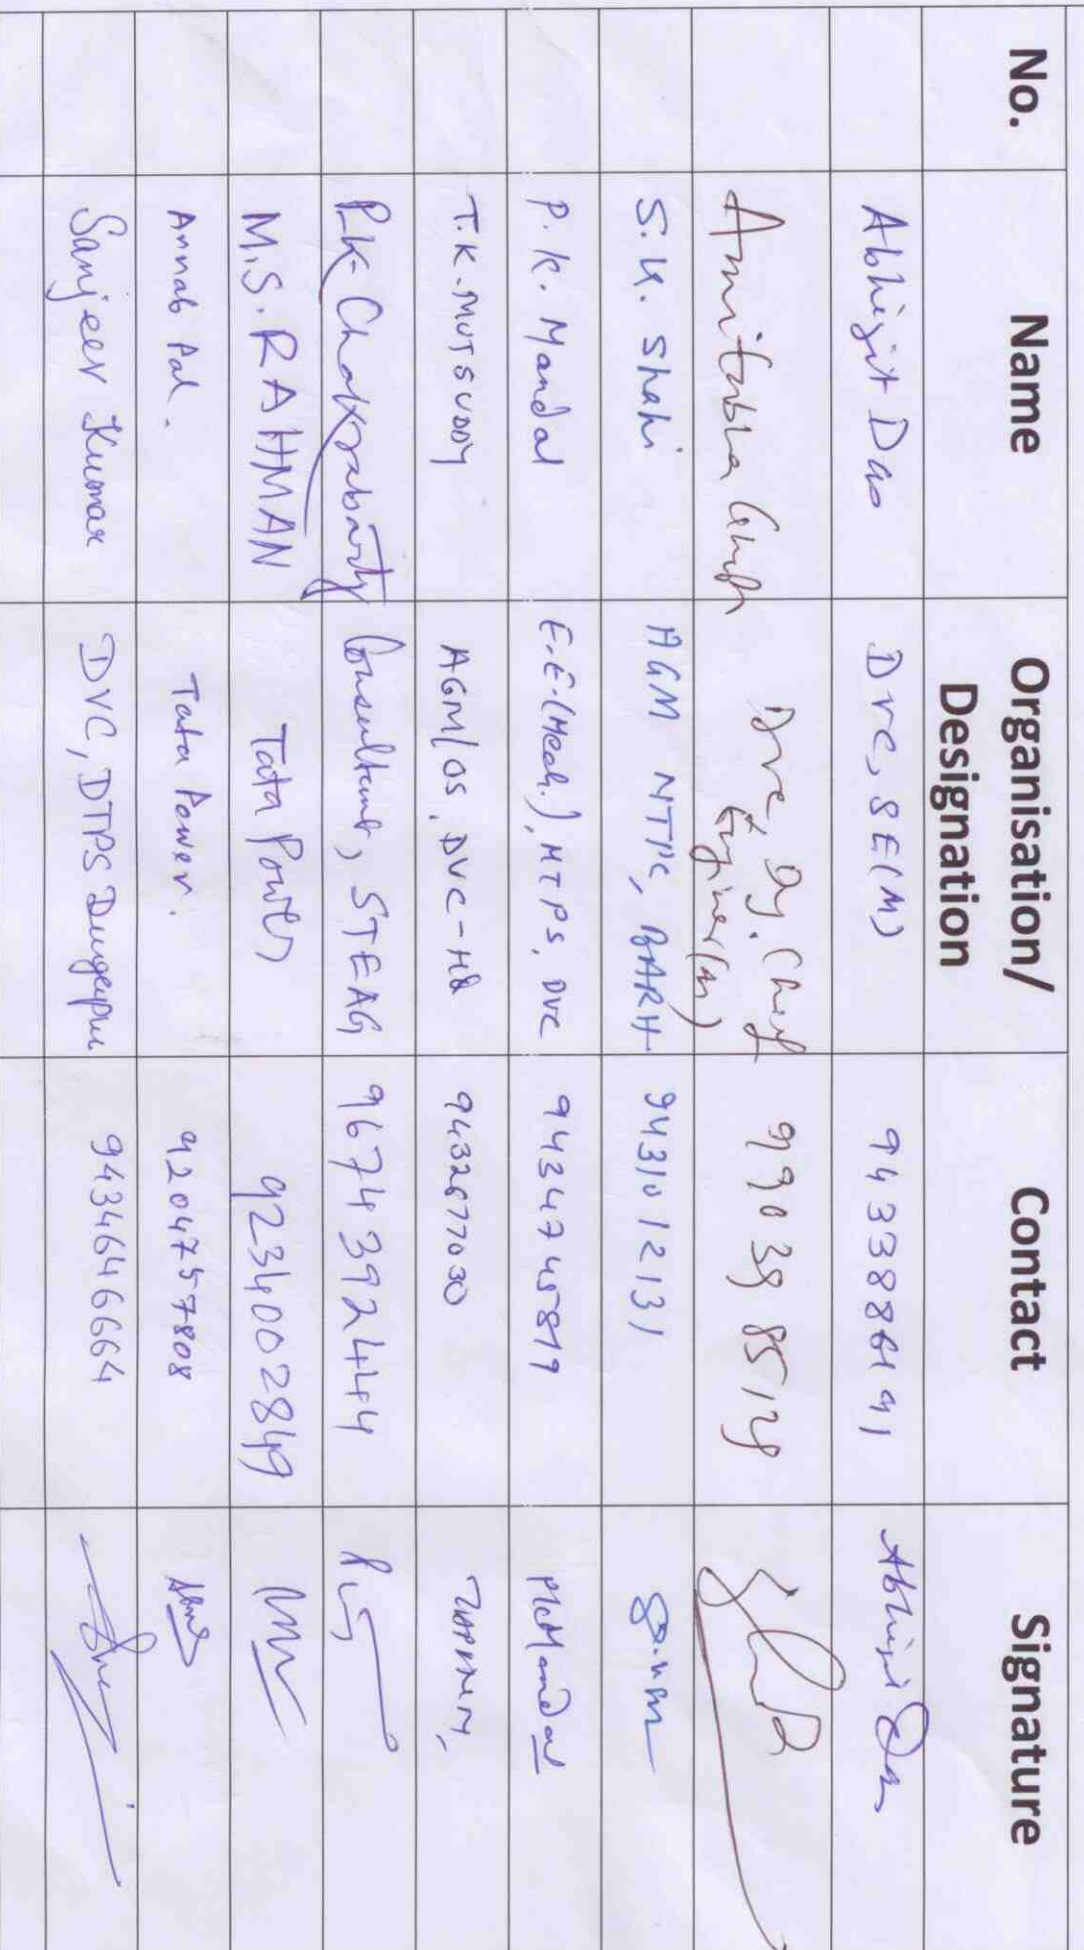 No. Name Organisation/ Designation Contact Signature
Abhijit Das DVC, SE(M) 9433388641 Abhijit Das
Amitabha Ghosh DVC, Dy. Chief Engineer (M)
S.K. Shahi AGM NTPC, BARH 9431012131
P.K. Mandal E.E.(Mech.), MTPS, DVC 9434745819 PKMandal
T.K. MUTSUDDY AGM/OS, DVC-HQ 9432677030
P.K. Chakraborty Consultant, STEAG 9674392444
M.S. RAHMAN Tata Power 9234002849
Annab Pal. Tata Power. 9204757808
Sanjeev Kumar DVC, DTPS Durgapur 9434646664